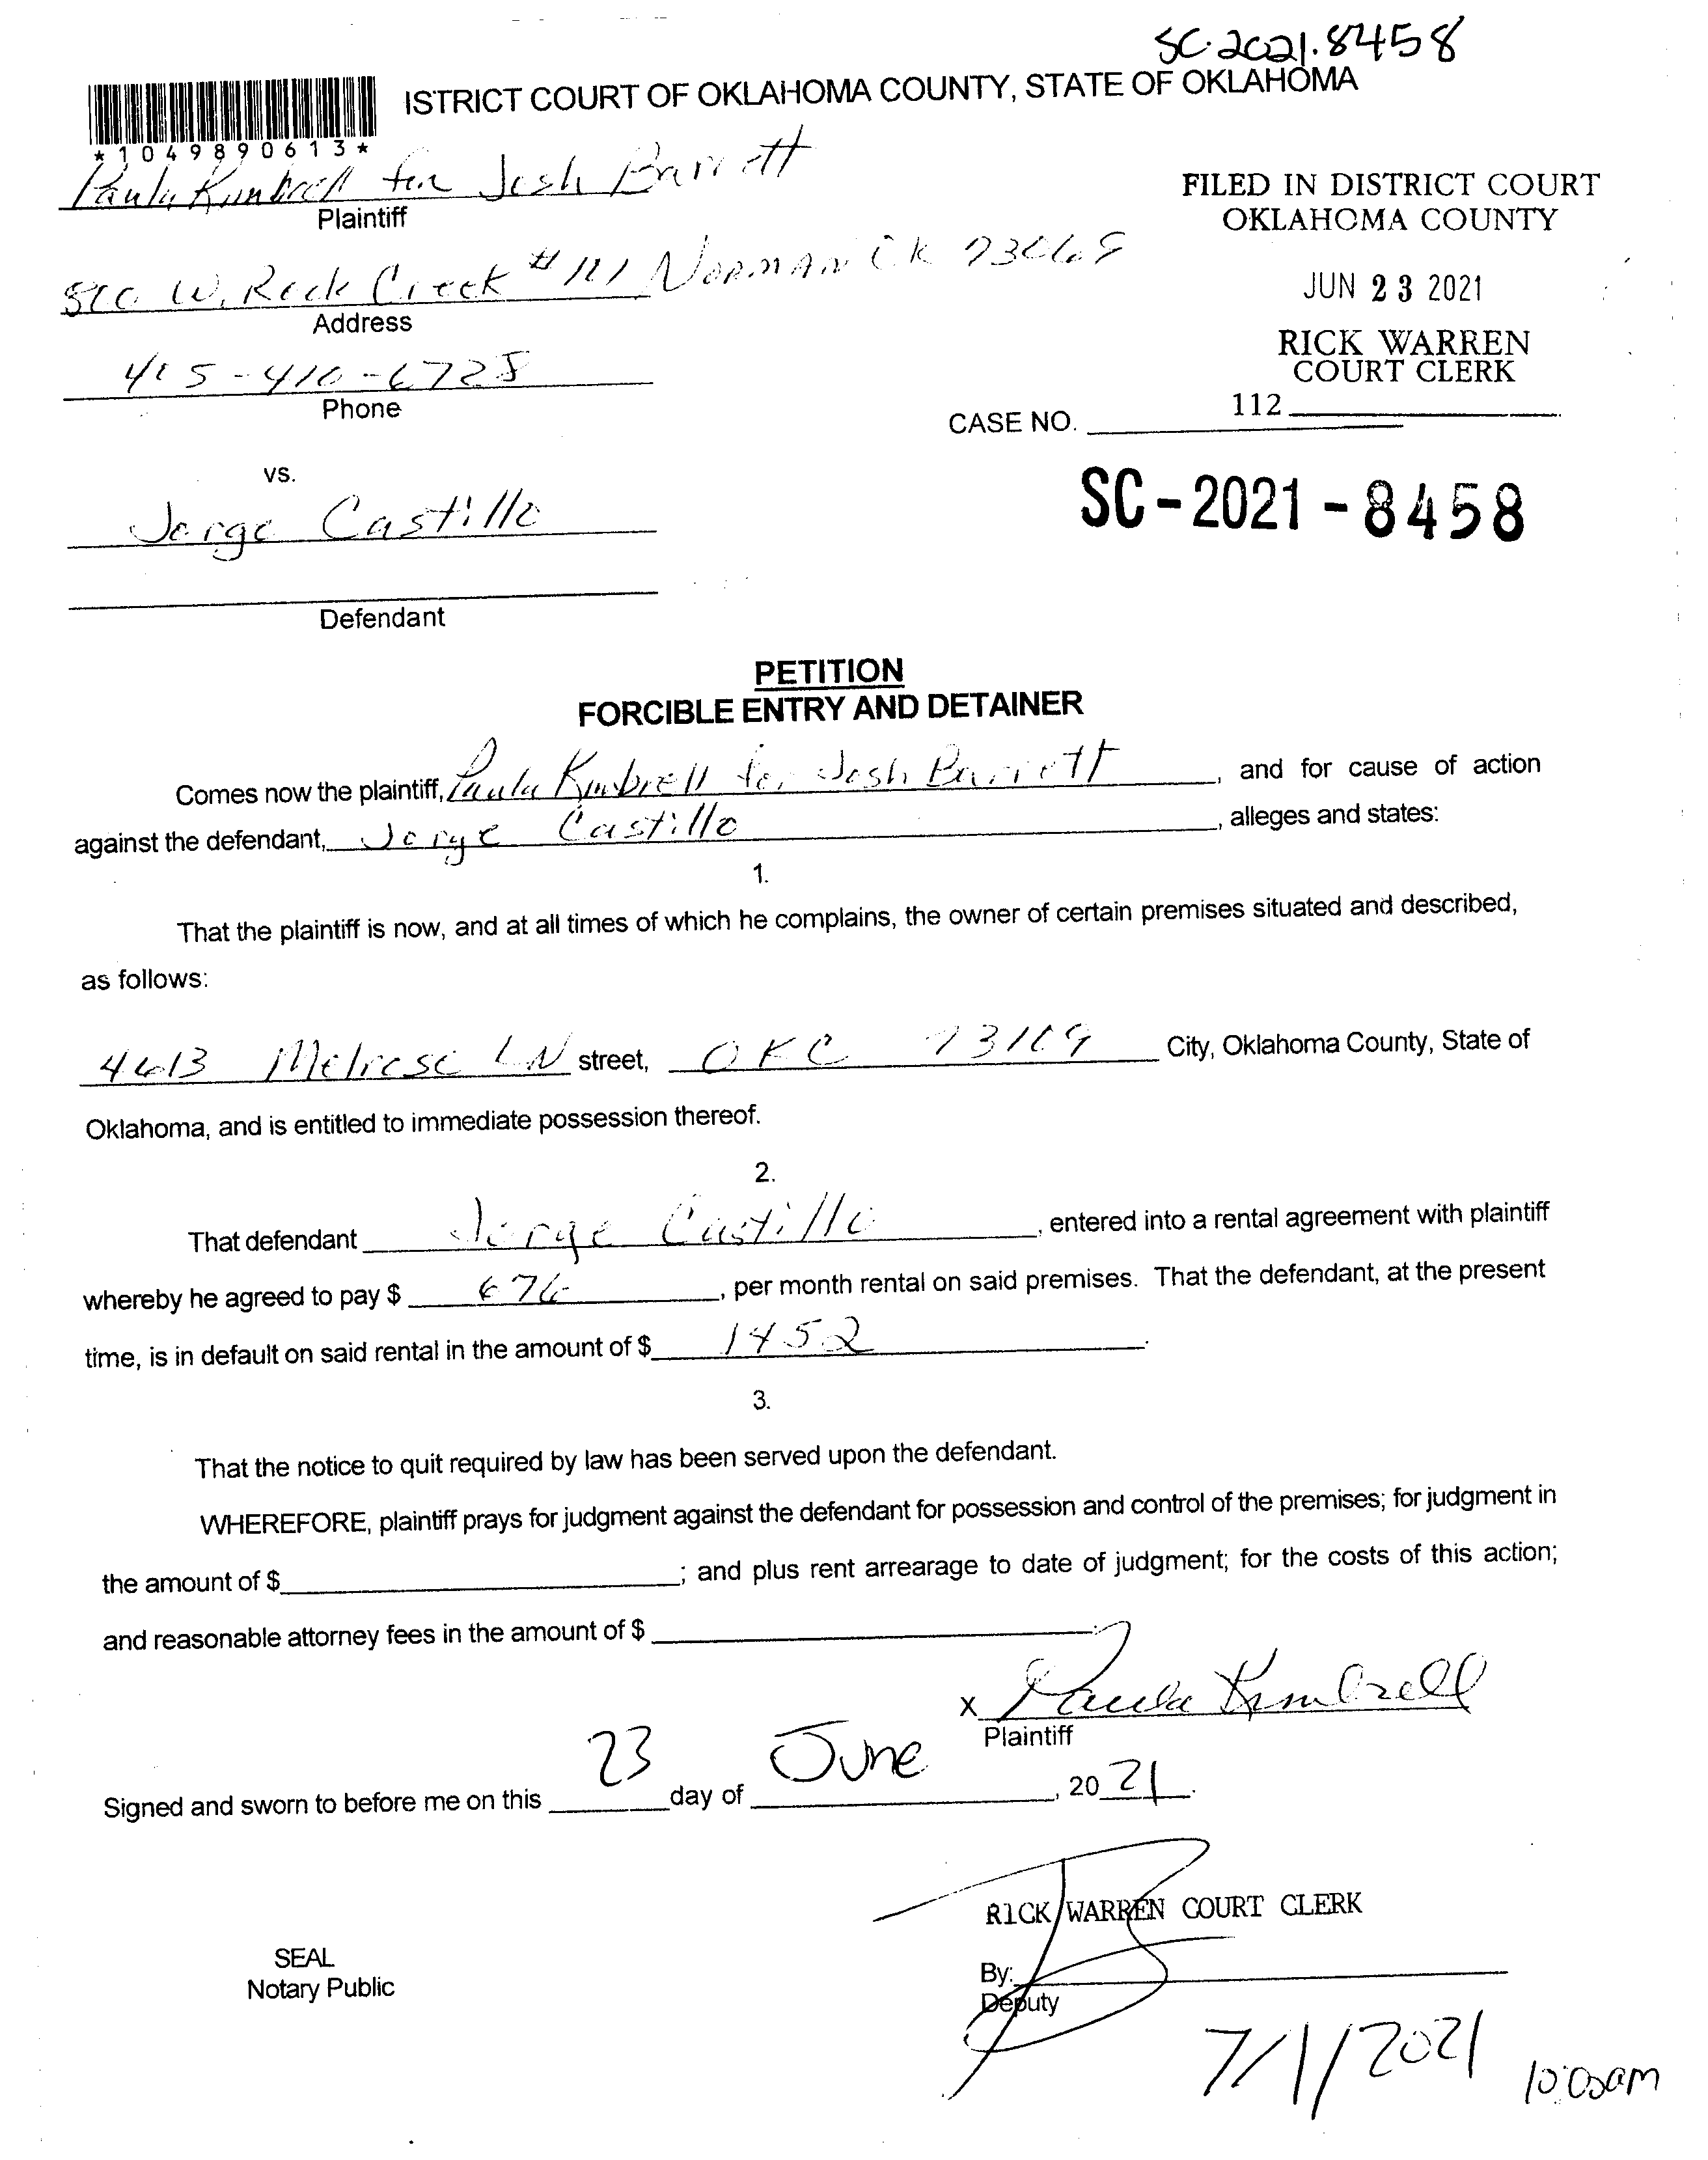 SC.2021.8458
ISTRICT COURT OF OKLAHOMA COUNTY, STATE OF OKLAHOMA
*1049890613*
Paula Kimbrell for Josh Barrett
Plaintiff
FILED IN DISTRICT COURT
OKLAHOMA COUNTY
W. Rock Creek #111 NORMAN OK
Address
JUN 23 2021
RICK WARREN
COURT CLERK
405-410-6728
Phone
112
CASE NO.
vs.
SC-2021-8458
Jorge Castillo
Defendant
PETITION
FORCIBLE ENTRY AND DETAINER
Comes now the plaintiff, Paula Kimbrell for Josh Barrett, and for cause of action
against the defendant, Jorge Castillo, alleges and states:
1.
That the plaintiff is now, and at all times of which he complains, the owner of certain premises situated and described,
as follows:
4613 Melrose LN street, OKC City, Oklahoma County, State of
Oklahoma, and is entitled to immediate possession thereof.
2.
That defendant Jorge Castillo, entered into a rental agreement with plaintiff
whereby he agreed to pay $ 676, per month rental on said premises. That the defendant, at the present
time, is in default on said rental in the amount of $ 1452.
3.
That the notice to quit required by law has been served upon the defendant.
WHEREFORE, plaintiff prays for judgment against the defendant for possession and control of the premises; for judgment in
the amount of $ ; and plus rent arrearage to date of judgment; for the costs of this action;
and reasonable attorney fees in the amount of $ .
X Paula Kimbrell
Plaintiff
Signed and sworn to before me on this 23 day of June, 20 21.
RICK WARREN COURT CLERK
SEAL
Notary Public
By:
Deputy
7/1/2021 10:00am